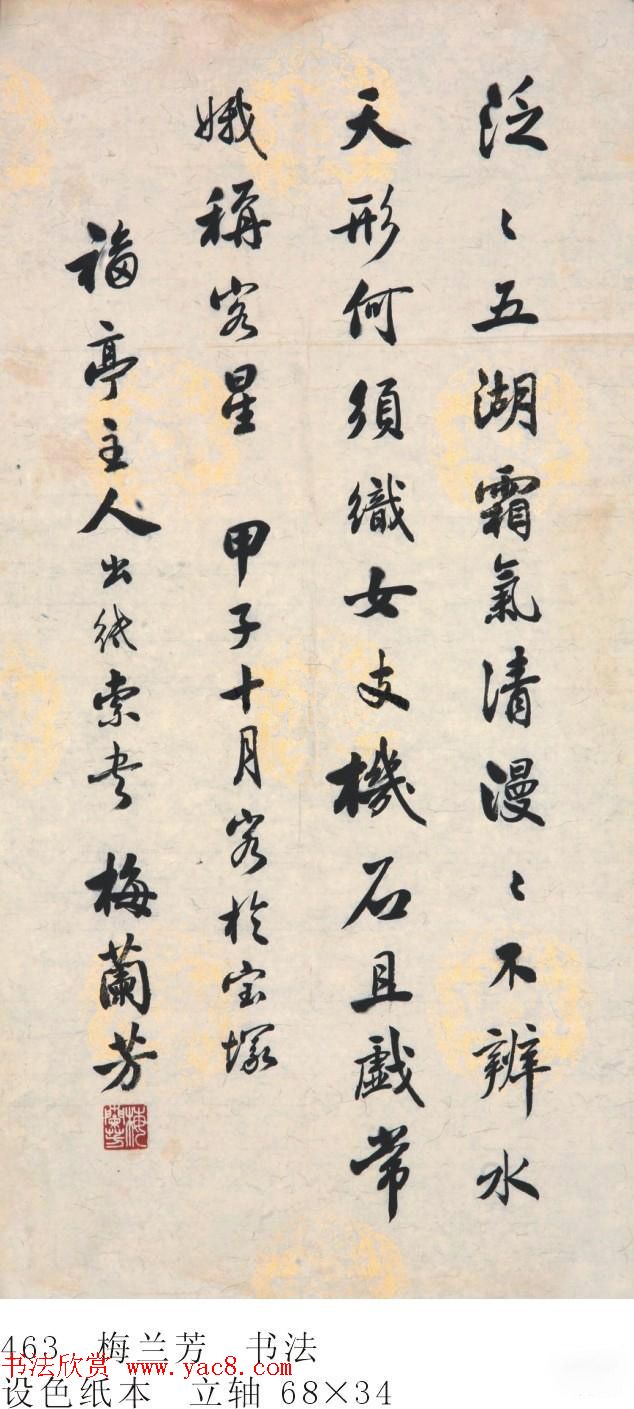 泛〻五湖霜氣清漫〻不辨水
天形何須織女支機石且戲常
娥稱客星 甲子十月客於宝塚
福亭主人出紙索书 梅蘭芳
梅蘭芳
463 梅兰芳 书法
书法欣赏 www.yac8.com
设色纸本 立轴 68×34